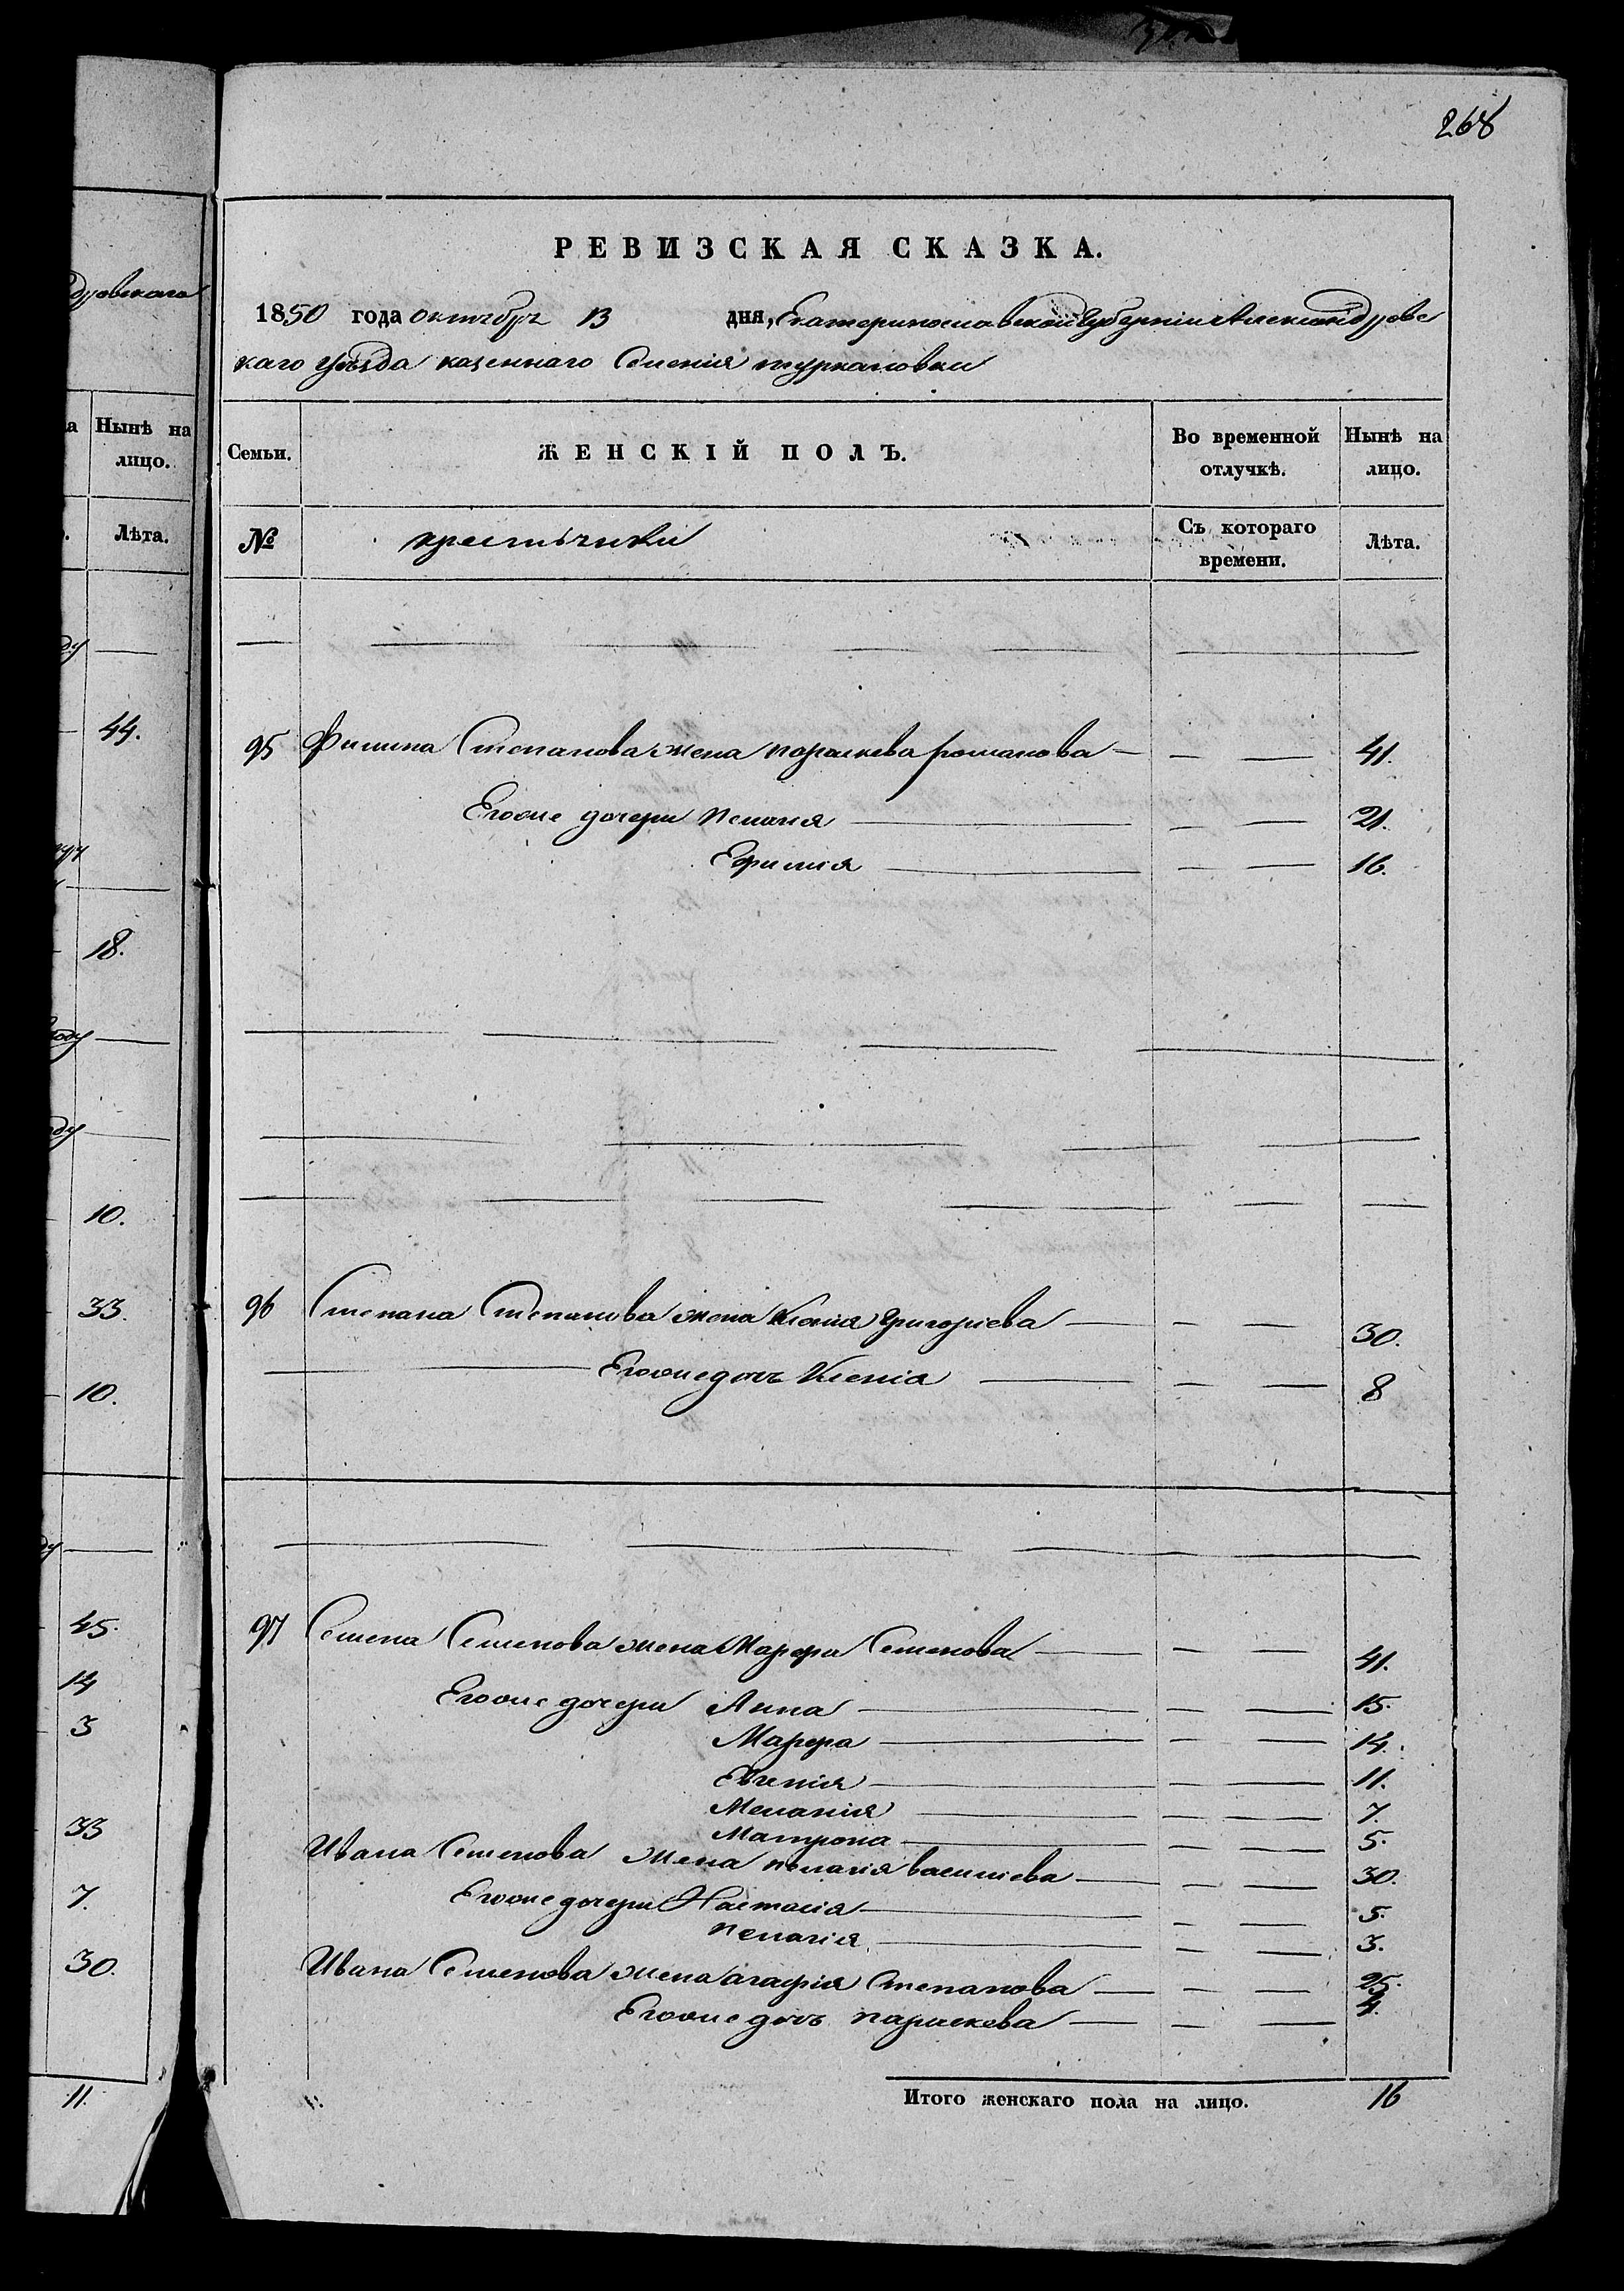 268
РЕВИЗСКАЯ СКАЗКА.
1850 года октября 13 дня, Екатеринославской Губерніи Александровс
каго уѣзда казеннаго Селенія туркановки
Семьи. ЖЕНСКІЙ ПОЛЪ. Во временной отлучкѣ. Нынѣ на лицо.
№ крестьянки Съ котораго времени. Лѣта.
95 Филипа Степанова жена параскева романова 41.
Егоже дочери Пелагия 21.
Ефимія 16.
96 Степана Степанова жена Ксенія Григоріева 30.
Егоже дочь Ксенія 8
97 Семена Семенова жена Марфа Семенова 41.
Егоже дочери Анна 15.
Марфа 14.
Евгенія 11.
Меланія 7.
Матрона 5.
Ивана Семенова жена пелагія василіева 30.
Егоже дочери Настасія 5.
пелагія 3.
Ивана Семенова жена агафія Степанова 25.
Егоже дочь параскева 4.
Итого женскаго пола на лицо. 16
дровскаго
Нынѣ на
лицо.
Лѣта.
44.
18.
году
10.
33.
10.
45.
14
3
33
7.
30.
11.